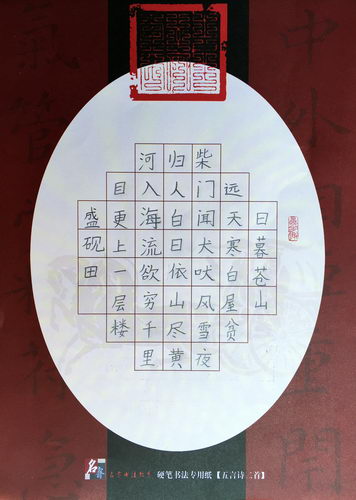 日暮苍山
远天寒白屋贫
柴门闻犬吠风雪夜
归人白日依山尽黄
河入海流欲穷千里
目更上一层楼
盛砚田
硬笔书法专用纸【五言诗二首】